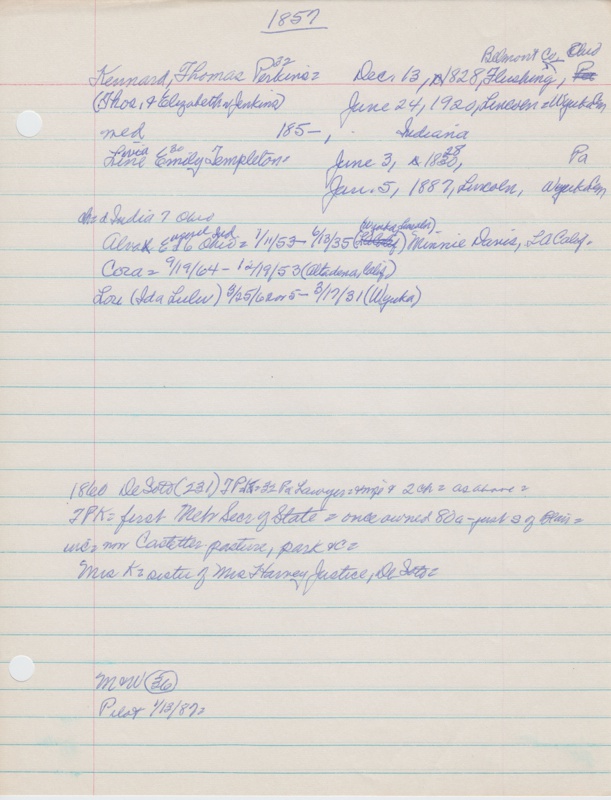 1857
Belmont Co. Ohio
Kennard, Thomas Perkins= 32 Dec. 13, 1828, Flushing, Pa
(Thos. & Elizabeth Jenkins) June 24, 1920, Lincoln = Wyuka Cem
med 185-, Indiana
Livia Emily Templeton= 30 June 3, 1830, 28 Pa
Jan. 5, 1887, Lincoln, Wyuka Cem
Ch= d India 7 Ohio
Alva E 7/6 Ohio = 7/11/53- 6/13/35 (Wyuka, Lincoln) Minnie Davis, LA Calif.
Cora = 9/19/64 - 12/19/53 (Altadena, Calif)
Lou (Ida Lulu) 3/25/62 or 5 - 3/17/31 (Wyuka)
1860 DeSoto (231) TPK=32 Pa Lawyer= & 2 ch= as above=
TPK= first Nebr Secr of State = once owned 80a - just S of Blair=
inc= now Castetter pasture, park &c=
Mrs K= sister of Mrs Harvey Justice, De Soto=
M&W (36)
Pilot 1/13/87=